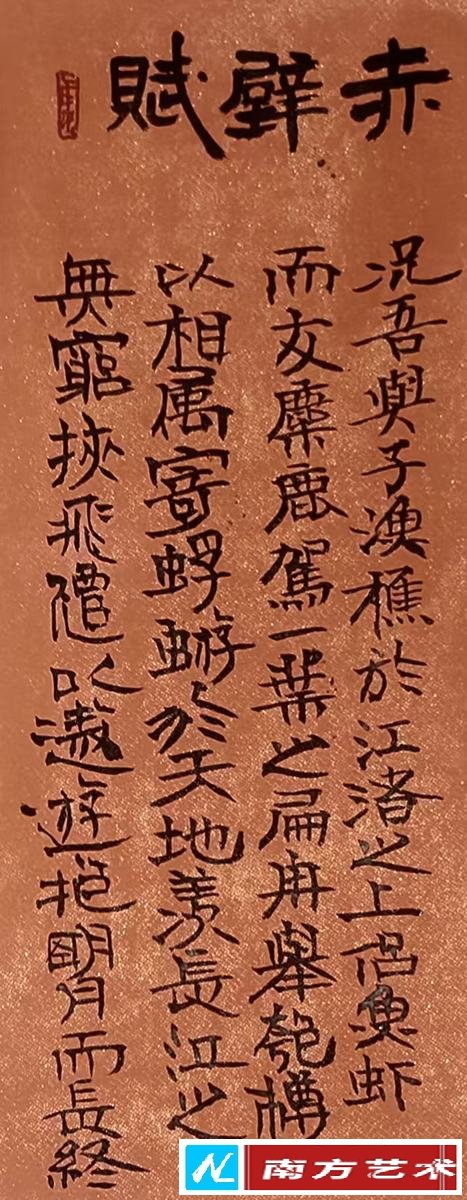 赤壁賦
况吾與子漁樵於江渚之上侣魚虾
而友麋鹿駕一葉之扁舟舉匏樽
以相属寄蜉蝣於天地羡長江之
無窮挾飛僊以遨遊抱明月而長終
南方艺术